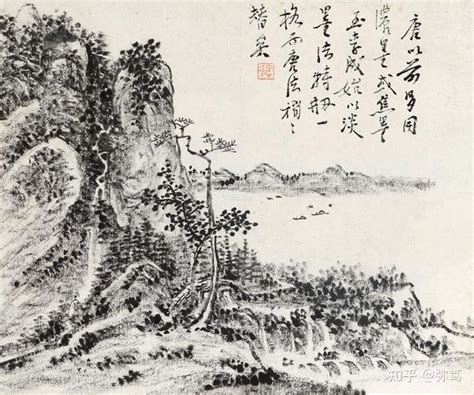 唐以前多用
濃墨或焦墨
至李成始以淡
墨法特剏一
格而唐法稍〻
替矣
知乎 @弥笃